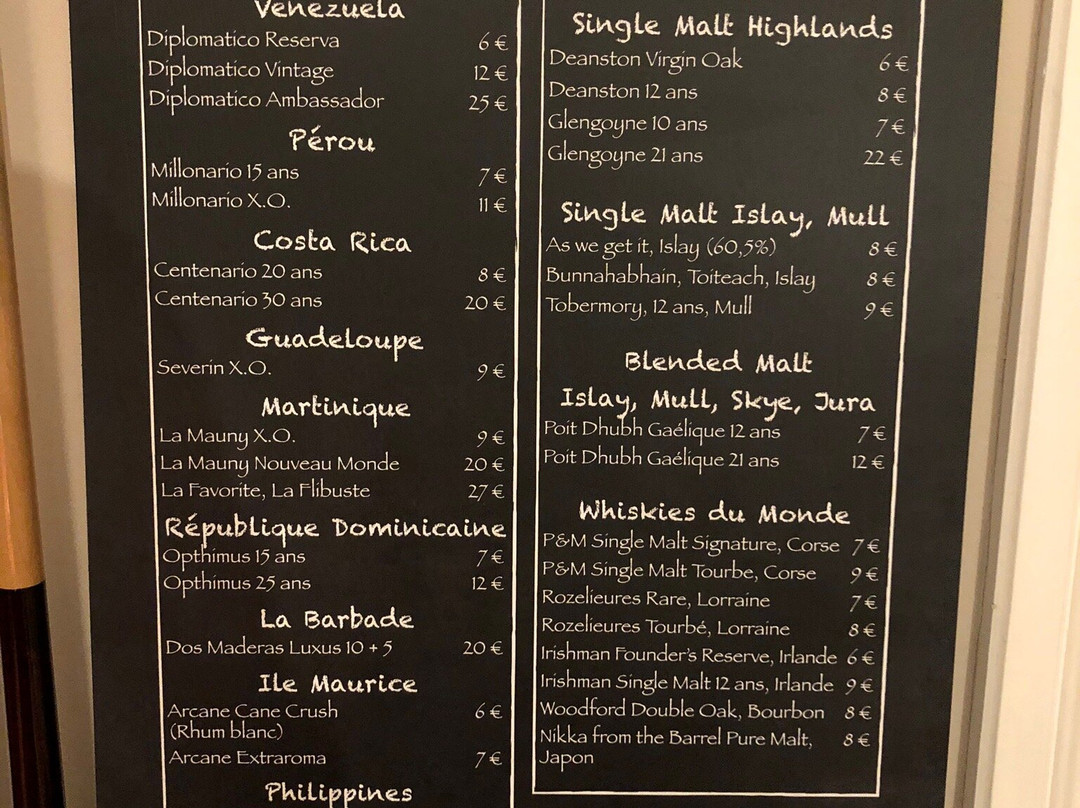 Venezuela
Diplomatico Reserva 6 €
Diplomatico Vintage 12 €
Diplomatico Ambassador 25 €
Pérou
Millonario 15 ans 7 €
Millonario X.O. 11 €
Costa Rica
Centenario 20 ans 8 €
Centenario 30 ans 20 €
Guadeloupe
Severin X.O. 9 €
Martinique
La Mauny X.O. 9 €
La Mauny Nouveau Monde 20 €
La Favorite, La Flibuste 27 €
République Dominicaine
Opthimus 15 ans 7 €
Opthimus 25 ans 12 €
La Barbade
Dos Maderas Luxus 10 + 5 20 €
Ile Maurice
Arcane Cane Crush 6 €
(Rhum blanc)
Arcane Extraroma 7 €
Philippines
Single Malt Highlands
Deanston Virgin Oak 6 €
Deanston 12 ans 8 €
Glengoyne 10 ans 7 €
Glengoyne 21 ans 22 €
Single Malt Islay, Mull
As we get it, Islay (60,5%) 8 €
Bunnahabhain, Toiteach, Islay 8 €
Tobermory, 12 ans, Mull 9 €
Blended Malt
Islay, Mull, Skye, Jura
Poit Dhubh Gaélique 12 ans 7 €
Poit Dhubh Gaélique 21 ans 12 €
Whiskies du Monde
P&M Single Malt Signature, Corse 7 €
P&M Single Malt Tourbe, Corse 9 €
Rozelieures Rare, Lorraine 7 €
Rozelieures Tourbé, Lorraine 8 €
Irishman Founder's Reserve, Irlande 6 €
Irishman Single Malt 12 ans, Irlande 9 €
Woodford Double Oak, Bourbon 8 €
Nikka from the Barrel Pure Malt, 8 €
Japon